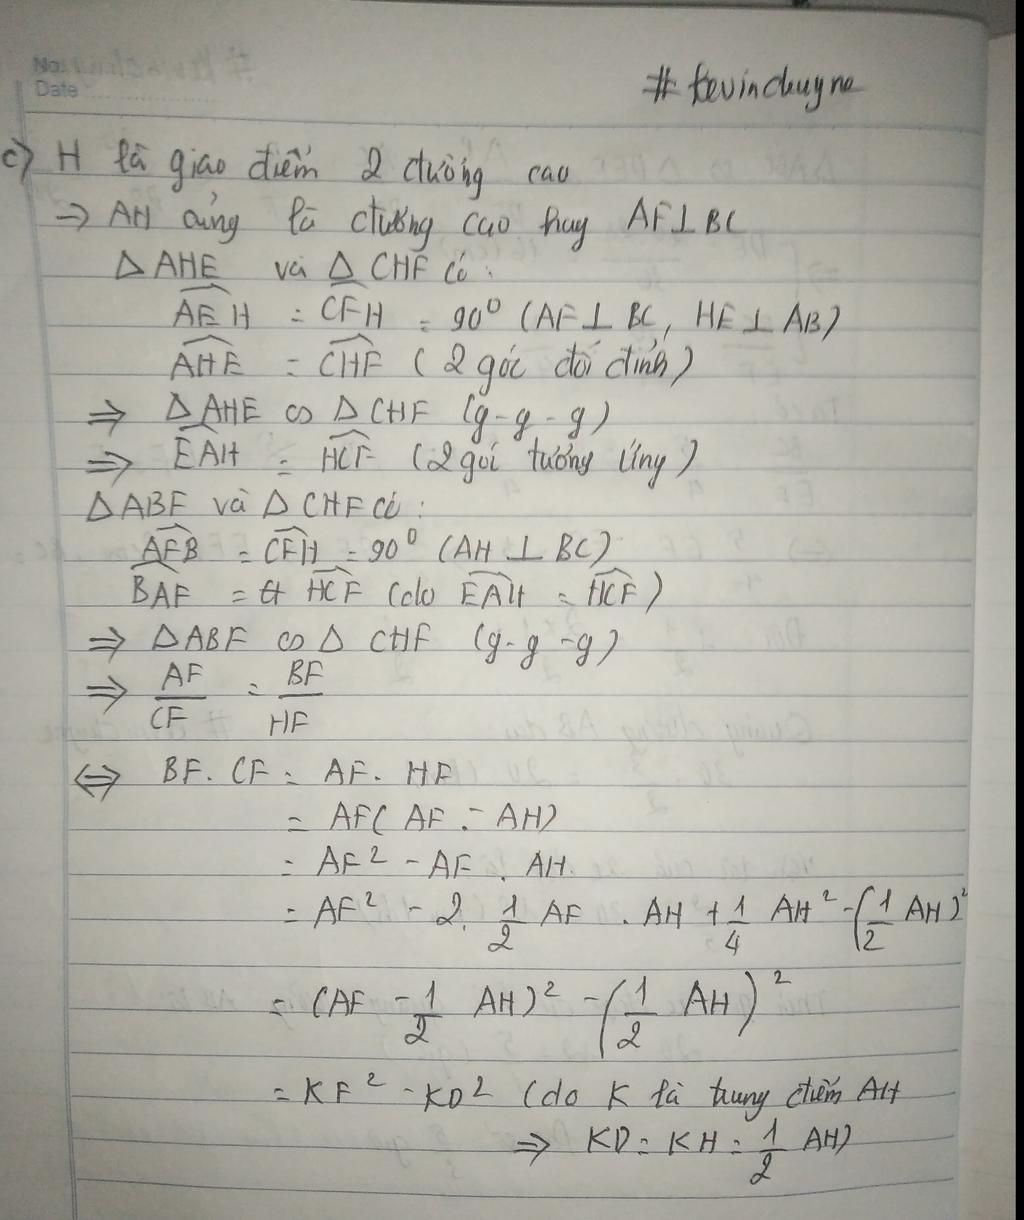 No:
Date
# kevinchuyne
c) H là giao điểm 2 đường cao
⇒ AH cũng là đường cao hay AF⊥BC
△AHE và △CHF có:
AEH = CFH = 90° (AF⊥BC, HE⊥AB)
AHE = CHF (2 góc đối đỉnh)
⇒ △AHE ∽ △CHF (g-g-g)
⇒ EAH = HCF (2 gói tương ứng)
△ABF và △CHF có:
AFB = CFH = 90° (AH ⊥ BC)
BAF = HCF (do EAH = HCF)
⇒ △ABF ∽ △ CHF (g-g-g)
⇒ AF/CF = BF/HF
⇔ BF. CF = AF. HF
= AF( AF - AH)
= AF² - AF . AH.
= AF² - 2. 1/2 AF . AH + 1/4 AH² - (1/2 AH)²
= (AF - 1/2 AH)² - (1/2 AH)²
= KF² - KD² (do K là trung điểm AH
⇒ KD = KH = 1/2 AH)